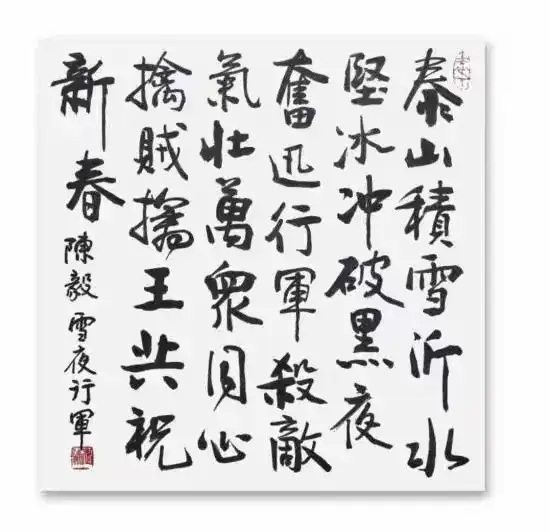 泰山積雪沂水
堅冰冲破黑夜
奮迅行軍殺敵
氣壯萬眾同心
擒賊擒王共祝
新春
陳毅雪夜行軍